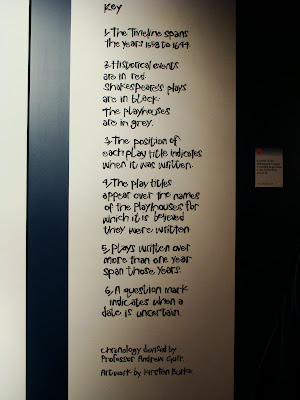 Key
1. The Timeline spans
the years 1558 to 1644.
2. Historical events
are in red.
Shakespeare's plays
are in black.
The playhouses
are in grey.
3. The position of
each play title indicates
when it was written.
4. The play titles
appear over the names
of the playhouses for
which it is believed
they were written
5. Plays written over
more than one year
span those years.
6. A question mark
indicates when a
date is uncertain.
Chronology devised by
Professor Andrew Gurr.
Artwork by Kirsten Burke